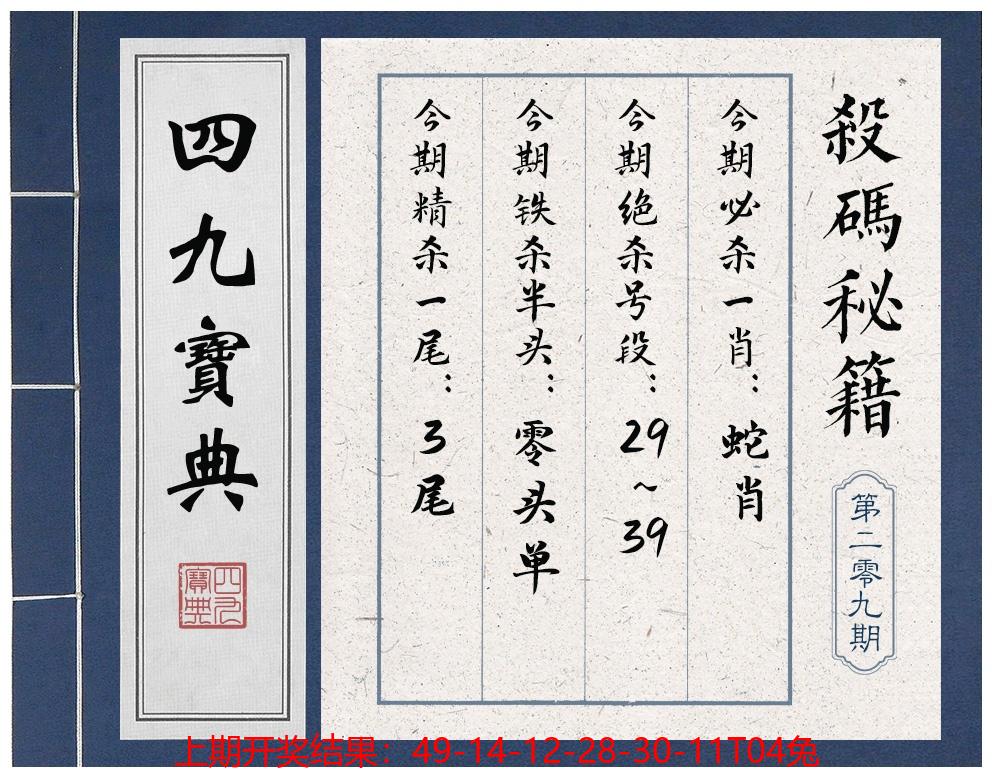 殺碼秘籍
第二零九期
今期必杀一肖：蛇肖
今期绝杀号段：29~39
今期铁杀半头：零头单
今期精杀一尾：3尾
四九寶典
四九
寶典
上期开奖结果：49-14-12-28-30-11T04兔